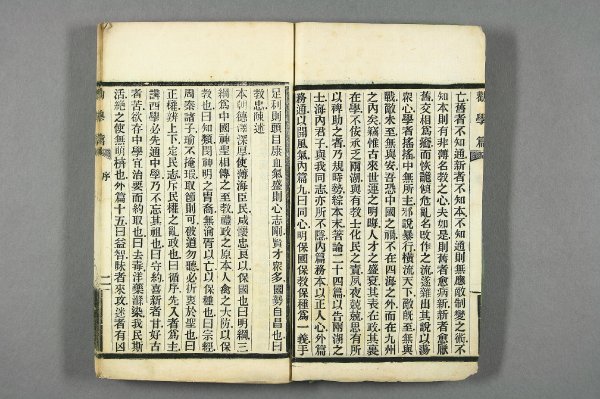 勸學篇
亡舊者不知通新者不知本不知通則無應敵制變之術不
知本則有非薄名教之心夫如是則舊者愈病新新者愈厭
舊交相爲瘉而恢詭傾危亂名改作之流遂雜出其說以蕩
衆心學者搖搖中無所主邪說暴行橫流天下敵既至無與
戰敵未至無與安吾恐中國之禍不在四海之外而在九州
之內矣竊惟古來世運之明晦人才之盛衰其表在政其裏
在學不佞承乏兩湖與有教士化民之責夙夜兢兢思有所
以裨助之者乃規時勢綜本末著論二十四篇以告兩湖之
士海內君子與我同志亦所不隱內篇務本以正人心外篇
務通以開風氣內篇九曰同心明保國保教保種爲一義手
足利則頭目康血氣盛則心志剛賢才衆多國勢自昌也曰
教忠陳述
本朝德澤深厚使薄海臣民咸懷忠良以保國也曰明綱三
綱爲中國神聖相傳之至教禮政之原本人禽之大防以保
教也曰知類閔神明之胄裔無淪胥以亡以保種也曰宗經
周秦諸子瑜不掩瑕取節則可破道勿聽必折衷於聖也曰
正權辨上下定民志斥民權之亂政也曰循序先入者爲主
講西學必先通中學乃不忘其祖也曰守約喜新者甘好古
者苦欲存中學宜治要而約取也曰去毒洋藥滌染我民斯
活絕之使無萌枿也外篇十五曰益智昧者來攻迷者有凶
序
二